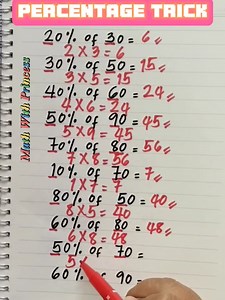 PERCENTAGE TRICK
Math With Princess
20% of 30 = 6
2 x 3 = 6
30% of 50 = 15
3 x 5 = 15
40% of 60 = 24
4 x 6 = 24
50% of 90 = 45
5 x 9 = 45
70% of 80 = 56
7 x 8 = 56
10% of 70 = 7
1 x 7 = 7
80% of 50 = 40
8 x 5 = 40
60% of 80 = 48
6 x 8 = 48
50% of 70 =
5 x
60% of 90 =